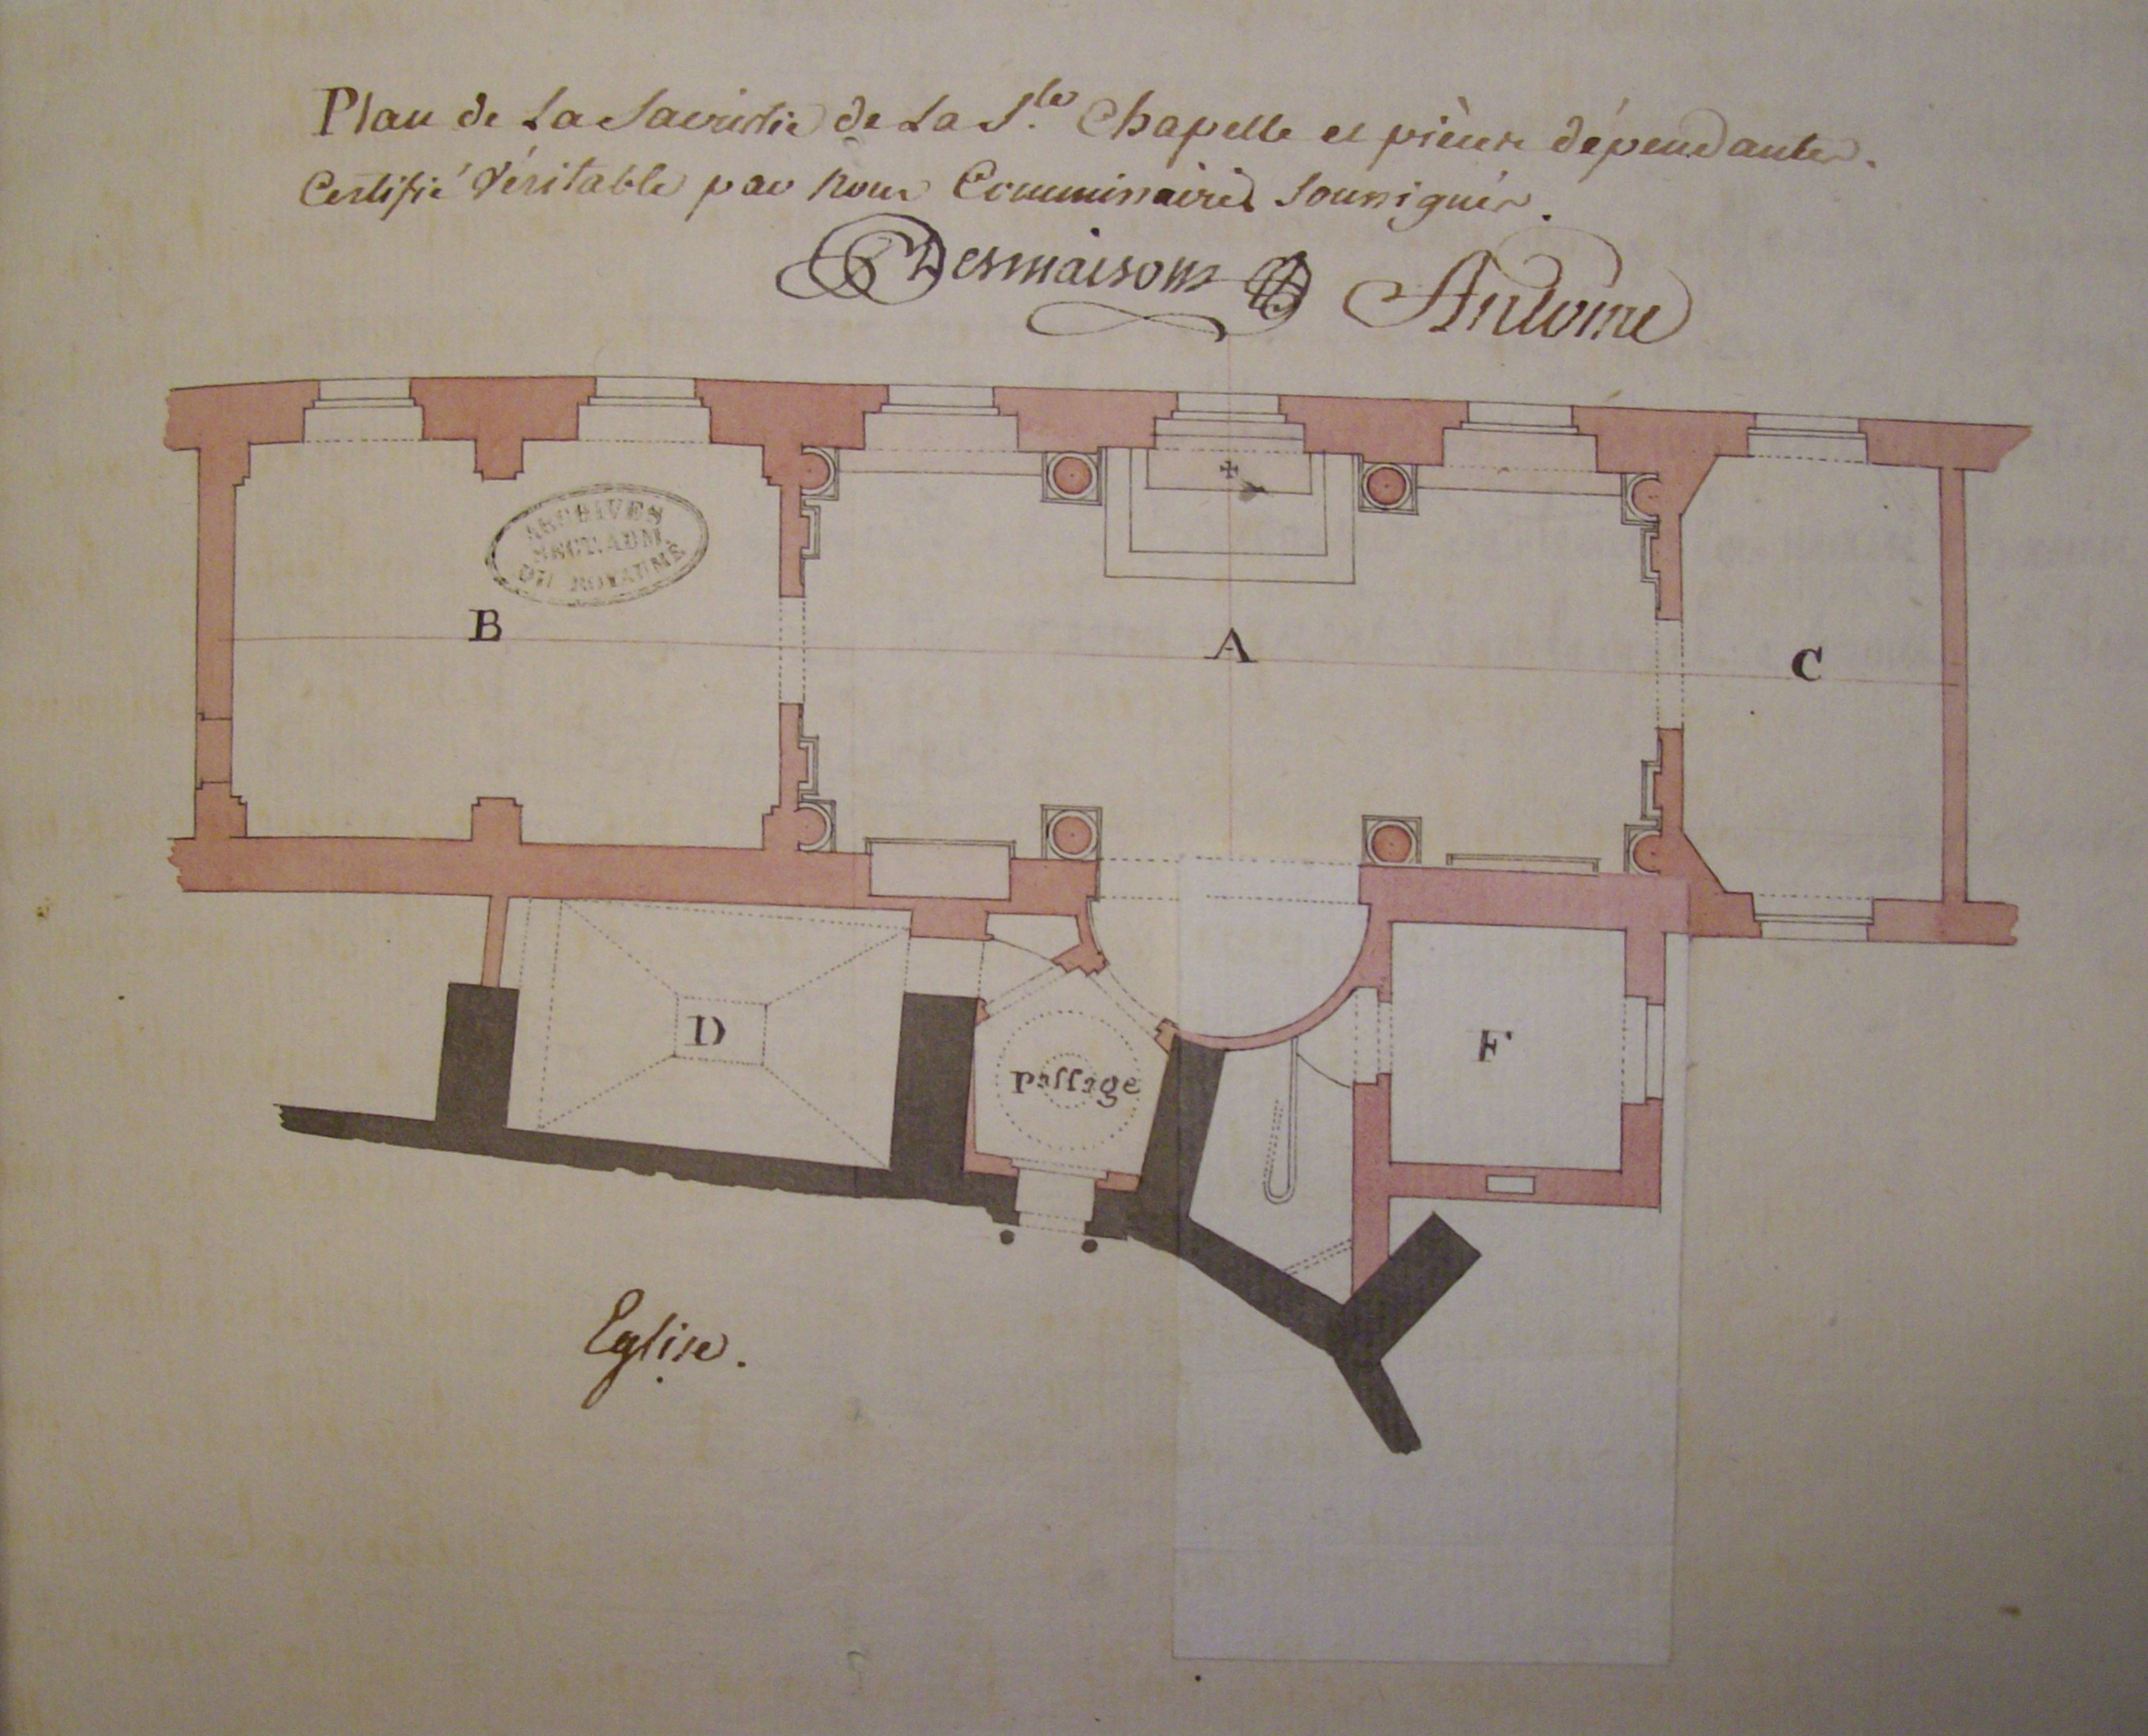 Plan de La Sacristie de La S.te Chapelle et pièces dépendantes.
Certifié Véritable par Nous Commissaires Soussignés.
Desmaisons Antoine
ARCHIVES
SECT. ADM.
DU ROYAUME
B
A
C
D
passage
F
Eglise.